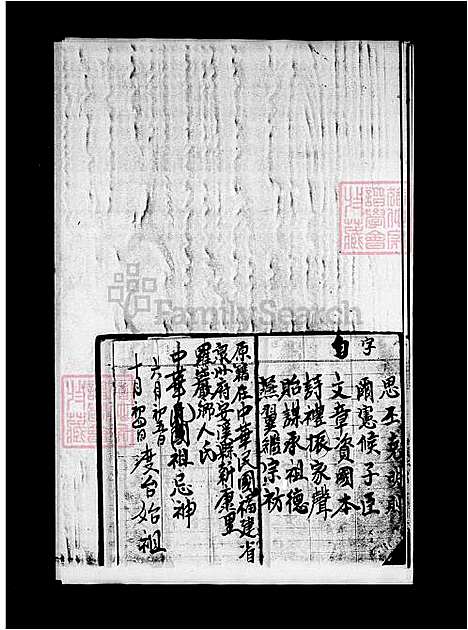 字
勻
思丕克
爾憲侯子臣
文章資國本
詩禮振家聲
貽謀承祖德
燕翼紹宗祊
原籍在中華民國福建省
泉州府安溪縣新康里
羅巖鄉人氏
中華民國祖忌神
六月初五日
十月初四日 渡台始祖
FamilySearch